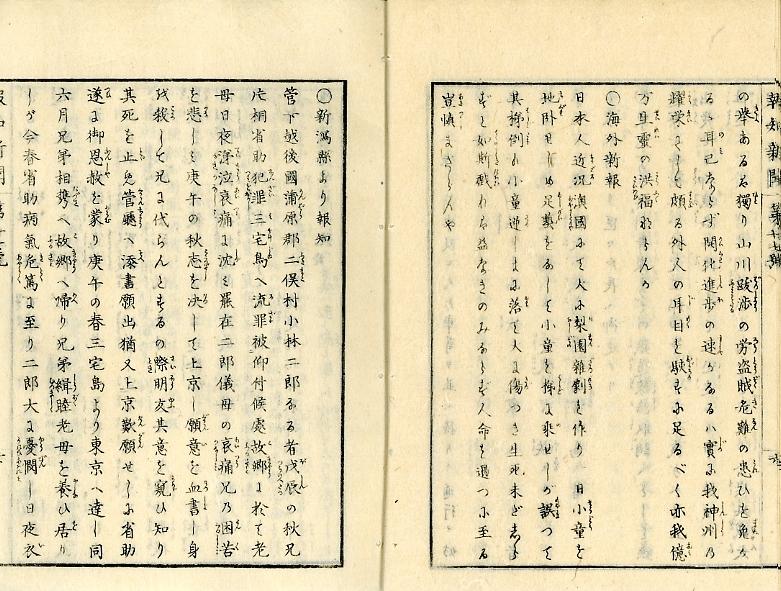 報知新聞 第十七號
の擧あるも獨り山川跋渉の労盗賊危難の患ひを免る
るの耳已ならず開化進歩の速かなるハ實に我神州の
耀栄にして頗る外人の耳目を驚すに足るべく亦我億
万生靈の洪福ならんか
○海外新報
日本人近況澳國に於て大に梨園雜劇を作り一日小童を
地卧せしめ足藝をなして小童を棒に乘せしが誤つて
其棒倒れ小童逆しまに落て大に傷つき生死未だ
人命を過つに至る
豈慎まざらんや
○新潟縣より報知
管下越後國蒲原郡二俣村小林二郎なる者戊辰の秋兄
片桐省助犯罪三宅島へ流罪被仰付候處故郷に於て老
母日夜涕泣哀痛に沈ミ罷在二郎儀母の哀痛兄の困苦
を悲しミ庚午の秋志を決して上京し願意を血書し身
を殺して兄に代らんとするの際明友其意を窺ひ知り
其死を止め管廳へ添書願出猶又上京歎願せしに省助
遂に御恩赦を蒙り庚午の春三宅島より東京へ達し同
六月兄弟相携へ故郷へ帰り兄弟緝睦老母を養ひ居り
しが今春省助病氣危篤に至り二郎大に憂悶し日夜衣